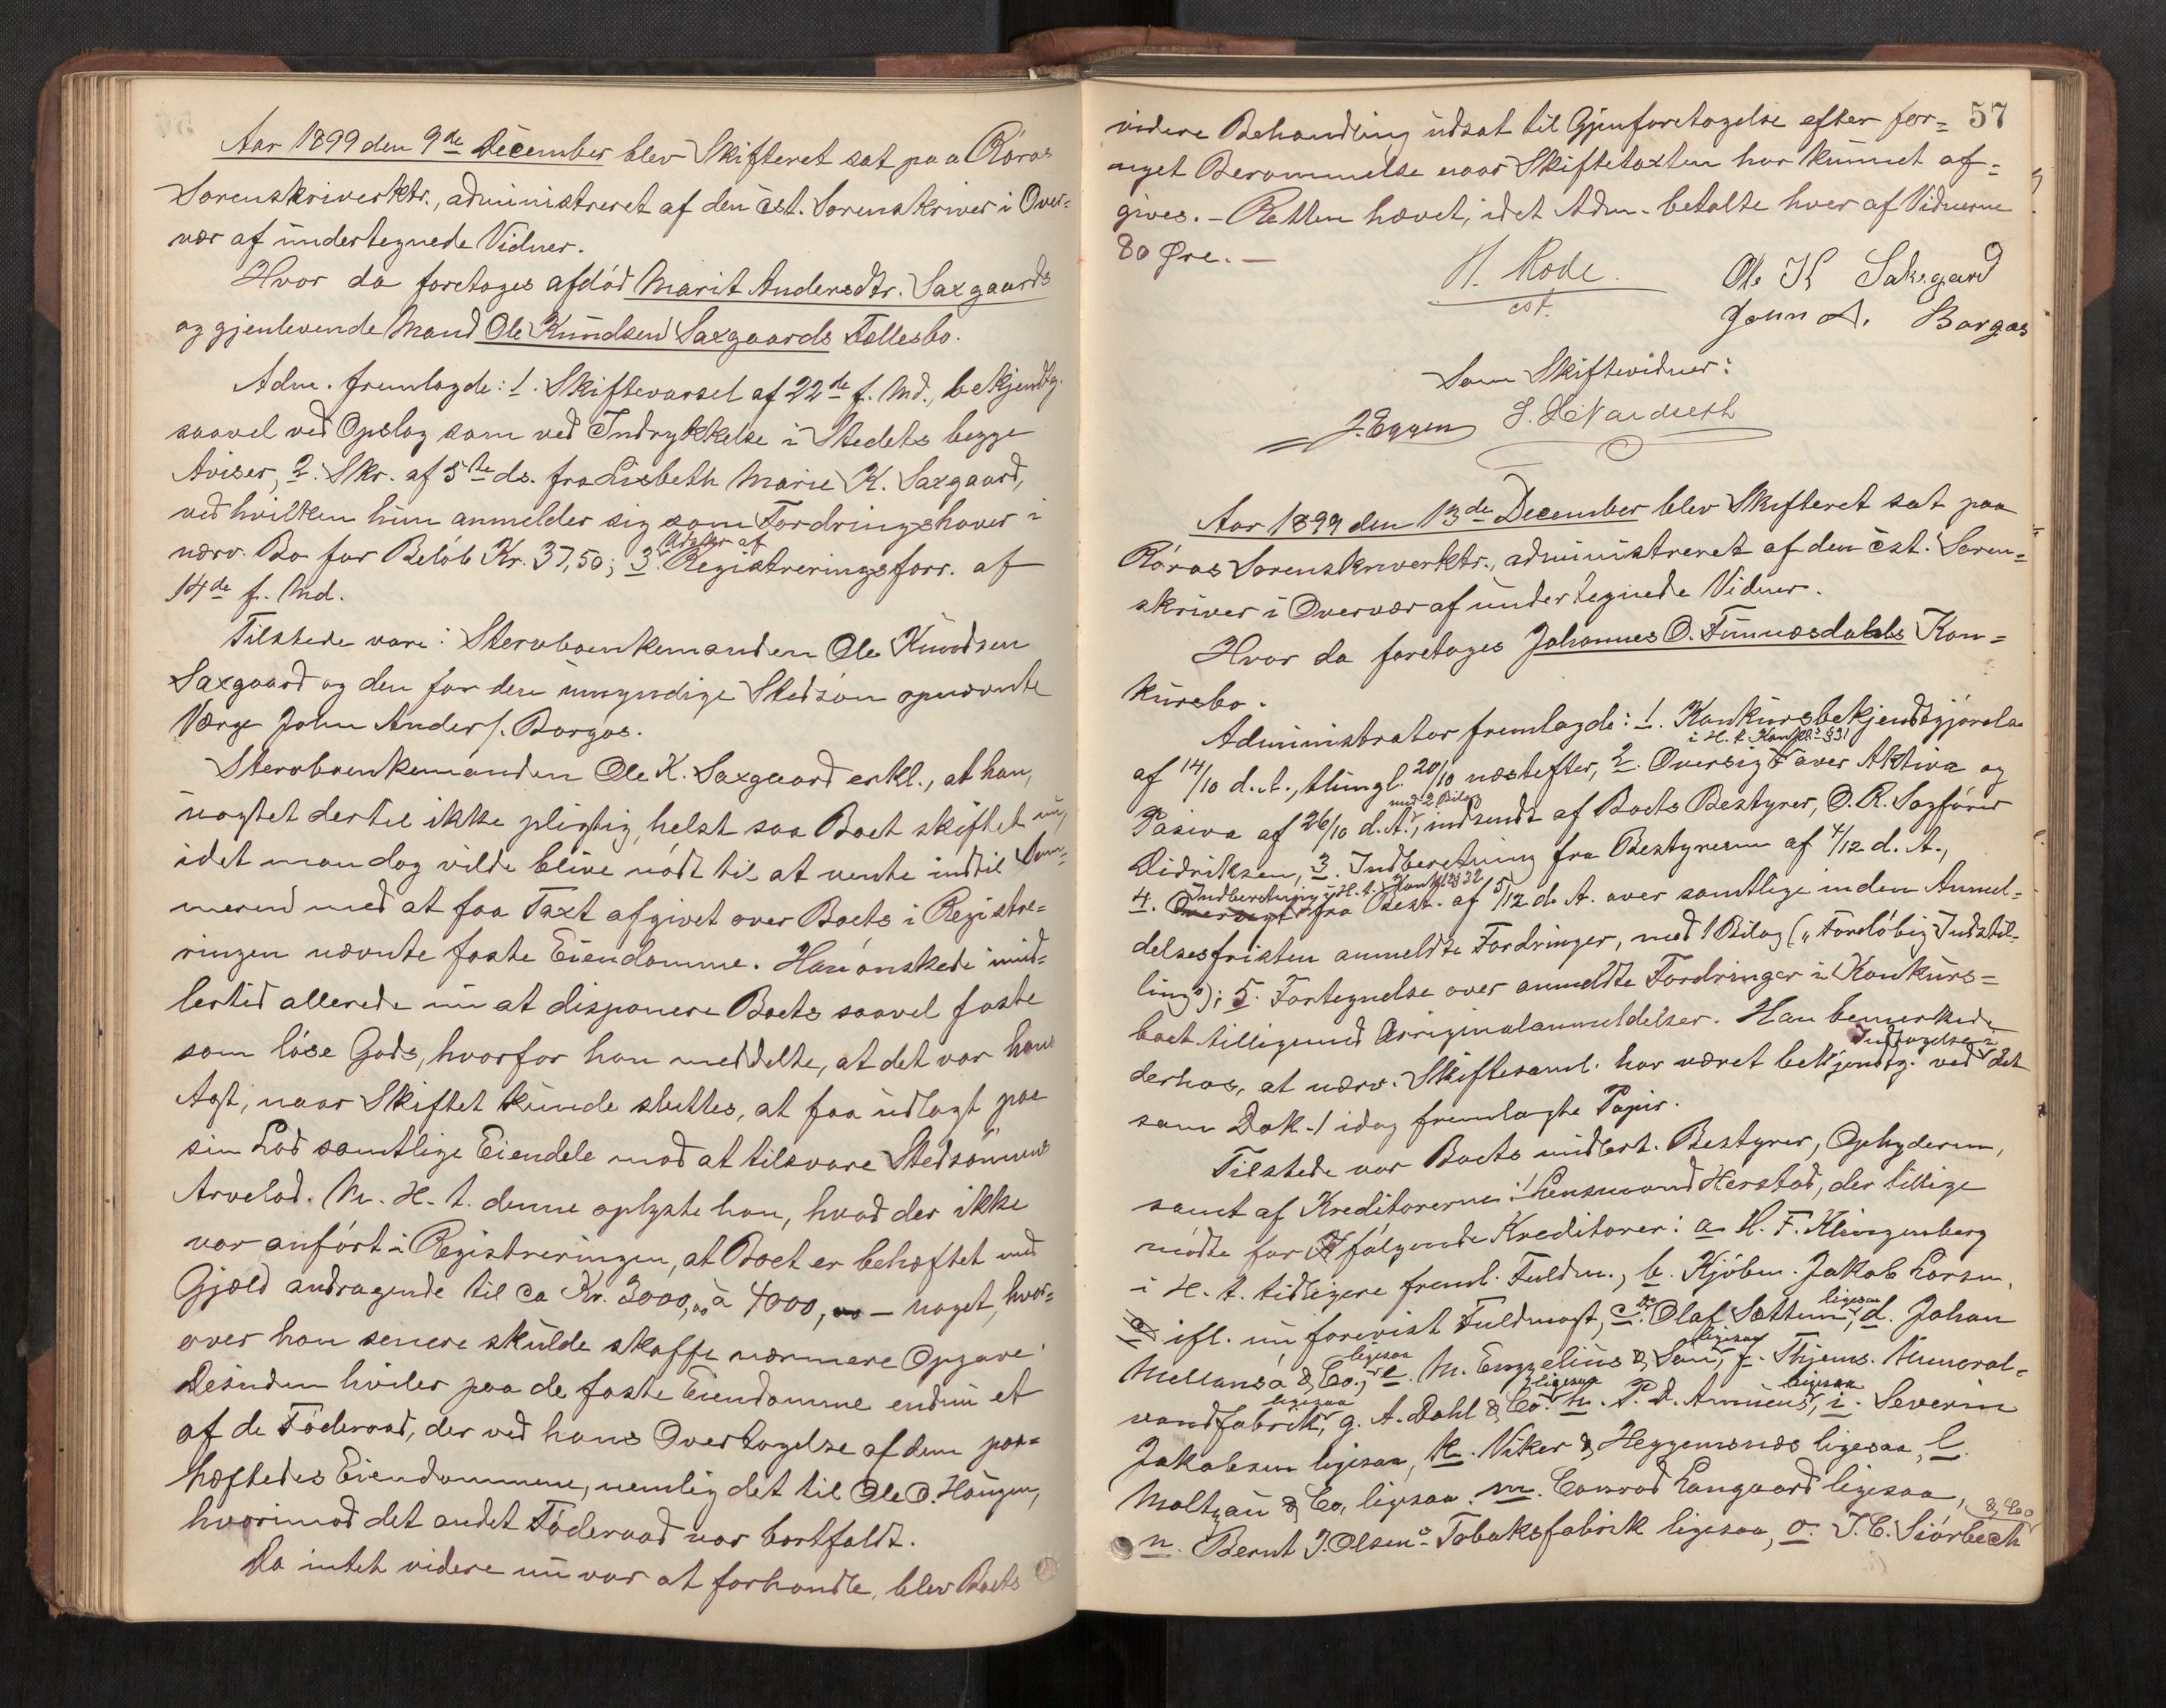 Aar 1899 den 9de December blev Skifteret sat paa Røros
Sorenskriverktr., administreret af den cst. Sorenskriver i Over=
vær af undertegnede Vidner.
Hvor da foretoges afdød Marit Andersdtr. Saxgaards
og gjenlevende Mand Ole Knudsen Saxgaards Fællesbo.
Adm. fremlagde: 1. Skiftevarsel af 22de f. Md., bekjendtg.
saavel ved Opslag som ved Indrykkelse i Stedets begge
Aviser, 2. Skr. af 5te ds. fra Lisbeth Marie K. Saxgaard,
ved hvilken hun anmelder sig som Fordringshaver i
nærv. Bo for Beløb Kr. 37,50; 3. Udskr. af Registreringsforr. af
14de f. Md.
Tilstede vare: Stervboenkemanden Ole Knudsen
Saxgaard og den for den umyndige Stedsøn opnævnte
Værge John Anders. Borgos.
Stervboenkemanden Ole K. Saxgaard erkl., at han,
uagtet dertil ikke pligtig, helst saa Boet skiftet nu,
idet man dog vilde blive nødt til at vente indtil Som=
meren med at faa Taxt afgivet over Boets i Registre=
ringen nævnte faste Eiendomme. Han ønskede imid=
lertid allerede nu at disponere Boets saavel faste
som løse Gods, hvorfor han meddelte, at det var hans
Agt, naar Skiftet kunde sluttes, at faa udlagt paa
sin Lod samtlige Eiendele mod at tilsvare Stedsønnens
Arvelod. M. H. t. denne oplyste han, hvad der ikke
var anført i Registreringen, at Boet er behæftet med
Gjæld andragende til ca Kr. 3000,00 à 4000,00 – noget, hvor=
over han senere skulde skaffe nærmere Opgave.
Desuden hviler paa de faste Eiendomme endnu et
af de Føderaad, der ved hans Overtagelse af dem paa=
hæftedes Eiendommene, nemlig det til Ole O. Haugen,
hvorimod det andet Føderaad var bortfaldt.
Da intet videre nu var at forhandle, blev Boets
57
videre Behandling udsat til Gjenforetagelse efter for=
nyet Berammelse naar Skiftetaxten har kunnet af=
gives. – Retten hævet, idet Adm. betalte hver af Vidnerne
80 Øre. –
H. Rode
cst.
Ole K Saksgard
John A. Borgos
Som Skiftevidner:
J. Eggen
Aar 1899 den 13de December blev Skifteret sat paa
Røros Sorenskriverktr., administreret af den cst. Soren=
skriver i Overvær af undertegnede Vidner.
Hvor da foretoges Johannes O. Funnæsdahls Kon=
kursbo.
Administrator fremlagde: 1. Konkursbekjendtgjørelse
af 14/10 d. A., thingl. 20/10 næstefter, 2. Oversigt i H. t. Konkl.s §31 over Aktiva og
Pasiva af 26/10 d. A. med 2 Bilag, indsendt af Boets Bestyrer, O.R. Sagfører
Didriksen, 3. Indberetning fra Bestyreren af 4/12 d. A.,
4. Indberetning i H. t. Konkl. § 32 fra Best. af 5/12 d. A. over samtlige inden Anmel=
delsesfristen anmeldte Fordringer, med 1 Bilag („Foreløbig Indstil=
ling"); 5. Fortegnelse over anmeldte Fordringer i Konkurs=
boet tilligemed Originalanmeldelser. Han bemerkede
derhos, at nærv. Skiftesaml. har været bekjendtg. ved Indtagelse i det
som Dok. 1 idag fremlagte Papir.
Tilstede var Boets midlert. Bestyrer, Ophyderen,
samt af Kreditorerne: Lensmand Herstad, der tillige
mødte for følgende Kreditorer: a H. F. Klingenberg
i H. t. tidligere freml. Fuldm., b. Kjøbm. Jakob Larsen,
ifl. nu forevist Fuldmagt, c. Olaf Sættem ligesaa, d. Johan
Mellansø & Co., ligesaa e. M. Engzelius & Søn, ligesaa f. Thjems. Mineral=
vandfabrik, ligesaa g. A. Dahl & Co. ligesaa h. P. A. Amnéus, ligesaa i. Severin
Jakobsen ligesaa, k. Viker & Heggemsnæs ligesaa, l.
Moltzau & Co, ligesaa. m. Conrad Langaard ligesaa,
n. Bernt J. Olsens Tobaksfabrik ligesaa, o. J. C. Siørbech & Co